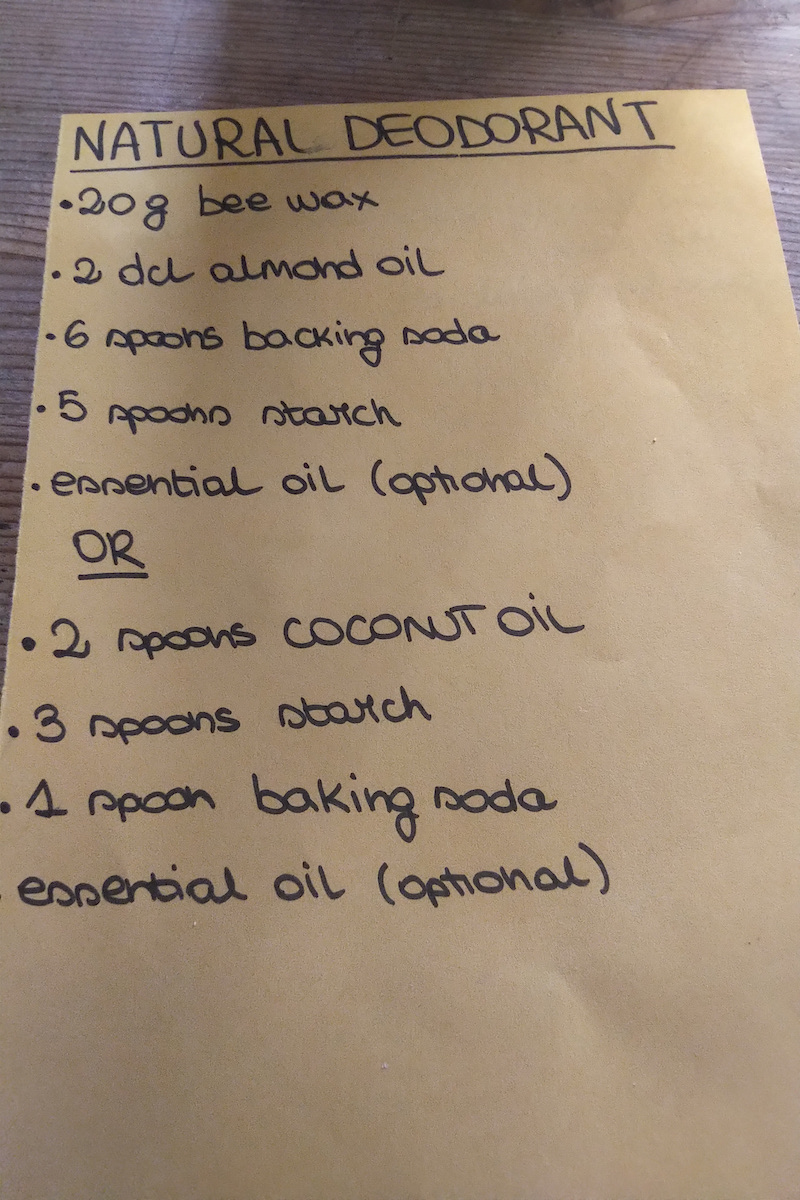 NATURAL DEODORANT
•20g bee wax
•2 dcl almond oil
•6 spoons backing soda
•5 spoons starch
•essential oil (optional)
OR
•2 spoons COCONUT OIL
•3 spoons starch
•1 spoon baking soda
•essential oil (optional)